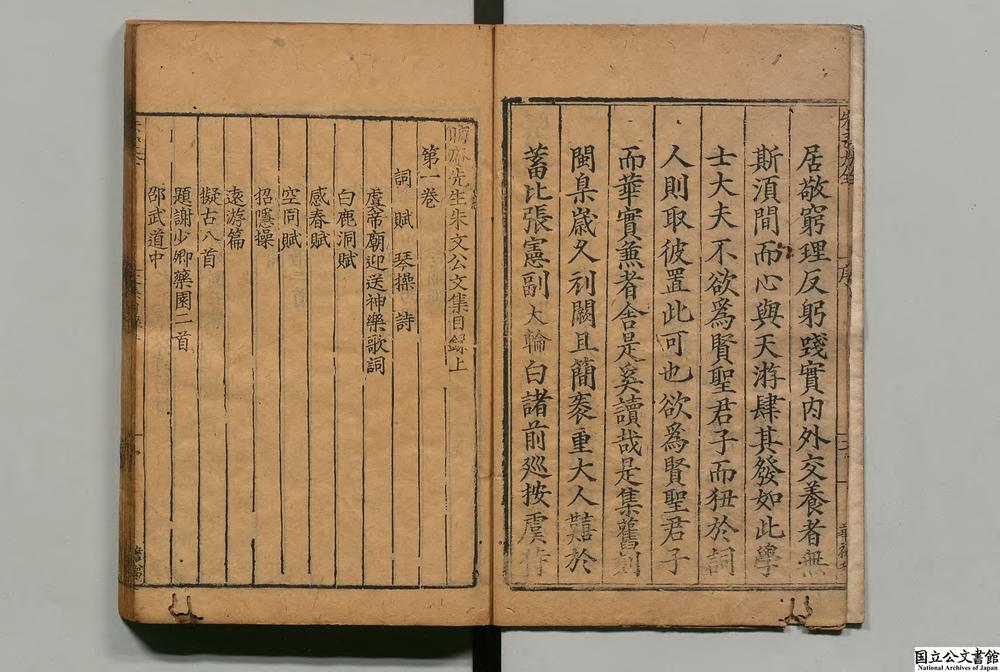 居敬窮理反躬踐實內外交養者無
斯湏間而心與天游肆其發如此學
士大夫不欲爲賢聖君子而狃於詞
人則取彼置此可也欲爲賢聖君子
而華實兼者舍是奚讀哉是集舊刻
閩臬歲久刓闕且簡袠重大人囏於
蓄比張憲副大輪白諸前廵按虞侍
序
晦庵先生朱文公文集目録上
第一卷
詞 賦 琴操 詩
虞帝廟迎送神樂歌詞
白鹿洞賦
感春賦
空同賦
招隱操
逺游篇
擬古八首
題謝少卿藥園二首
邵武道中
国立公文書館
National Archives of Japan